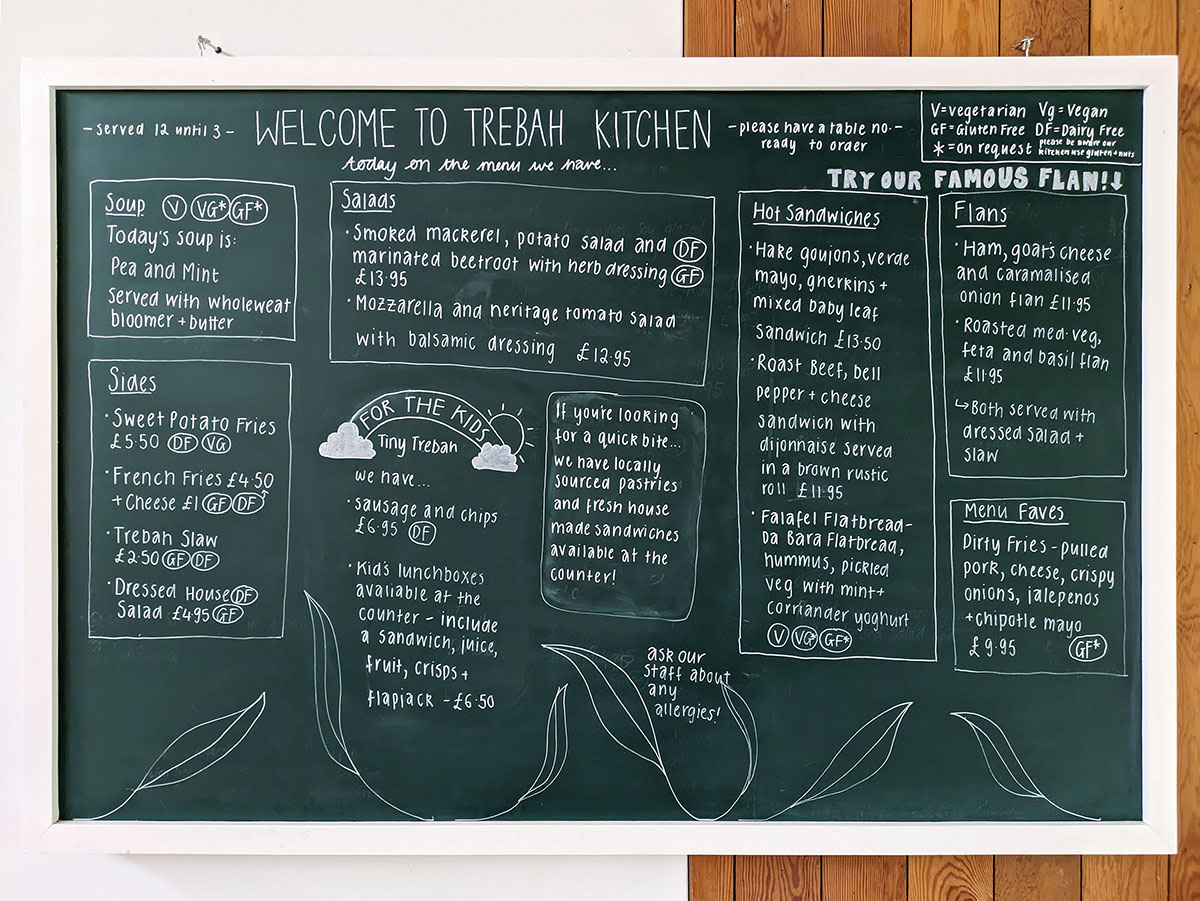 - served 12 until 3 -
WELCOME TO TREBAH KITCHEN
today on the menu we have...
- please have a table no. -
ready to order
V=vegetarian Vg=Vegan
GF=Gluten Free DF=Dairy Free
*=on request please be aware our
kitchen use gluten + nuts
TRY OUR FAMOUS FLAN!↓
Soup V VG* GF*
Today's soup is:
Pea and Mint
Served with wholeweat
bloomer + butter
Sides
· Sweet Potato Fries
£5·50 DF VG
· French Fries £4·50
+ Cheese £1 GF DF↑
· Trebah Slaw
£2·50 GF DF
· Dressed House DF
Salad £4.95 GF
Salads
· Smoked mackerel, potato salad and DF
marinated beetroot with herb dressing GF
£13·95
· Mozzarella and heritage tomato salad
with balsamic dressing £12·95
FOR THE KIDS
Tiny Trebah
we have...
· sausage and chips
£6·95 DF
· Kid's lunchboxes
avaliable at the
counter - include
a sandwich, juice,
fruit, crisps +
flapjack - £6·50
If you're looking
for a quick bite...
we have locally
sourced pastries
and fresh house
made sandwiches
available at the
counter!
ask our
staff about
any
allergies!
Hot Sandwiches
· Hake goujons, verde
mayo, gherkins +
mixed baby leaf
sandwich £13·50
· Roast Beef, bell
pepper + cheese
sandwich with
dijonnaise served
in a brown rustic
roll £11·95
· Falafel Flatbread -
Da Bara Flatbread,
hummus, pickled
veg with mint +
corriander yoghurt
V VG* GF*
Flans
· Ham, goat's cheese
and caramalised
onion flan £11·95
· Roasted med·veg,
feta and basil flan
£11·95
↳ Both served with
dressed salad +
slaw
Menu Faves
Dirty Fries - pulled
pork, cheese, crispy
onions, jalepenos
+ chipotle mayo
£9·95 GF*